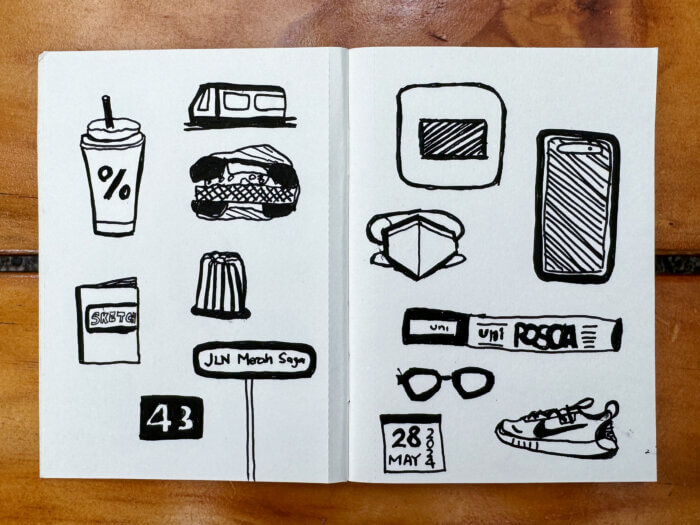 %
SKETCH
JLN Merah Saga
43
uni
uni POSCA
28
MAY
2024